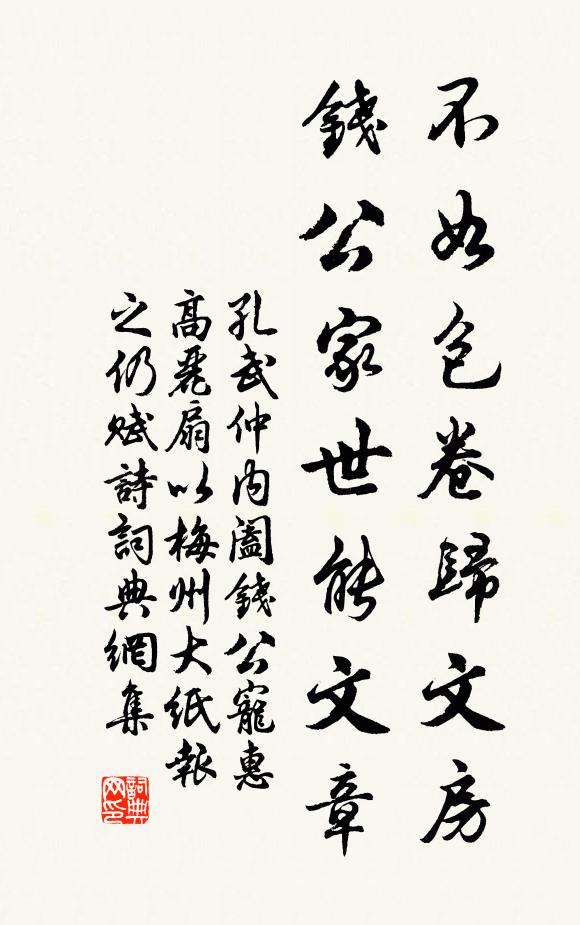 不如包卷歸文房
錢公家世能文章
孔武仲內閣錢公寵惠
高麗扇以梅州大紙報
之仍賦詩詞典網集
詞典網印